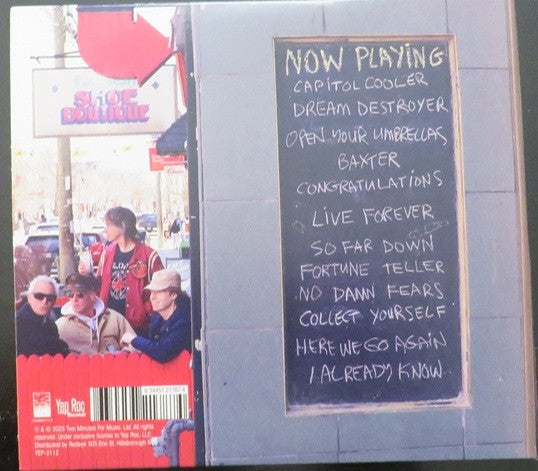 SHOE
BOUTIQUE
NOW PLAYING
CAPITOL COOLER
DREAM DESTROYER
OPEN YOUR UMBRELLAS
BAXTER
CONGRATULATIONS
LIVE FOREVER
SO FAR DOWN
FORTUNE TELLER
NO DAMN FEARS
COLLECT YOURSELF
HERE WE GO AGAIN
I ALREADY KNOW
Yep Roc
Records
℗ & © 2020 Two Minutes For Music, Ltd. All rights
reserved. Under exclusive license to Yep Roc, LLC.
Distributed by Redeye 505 Eno St. Hillsborough
YEP-3112